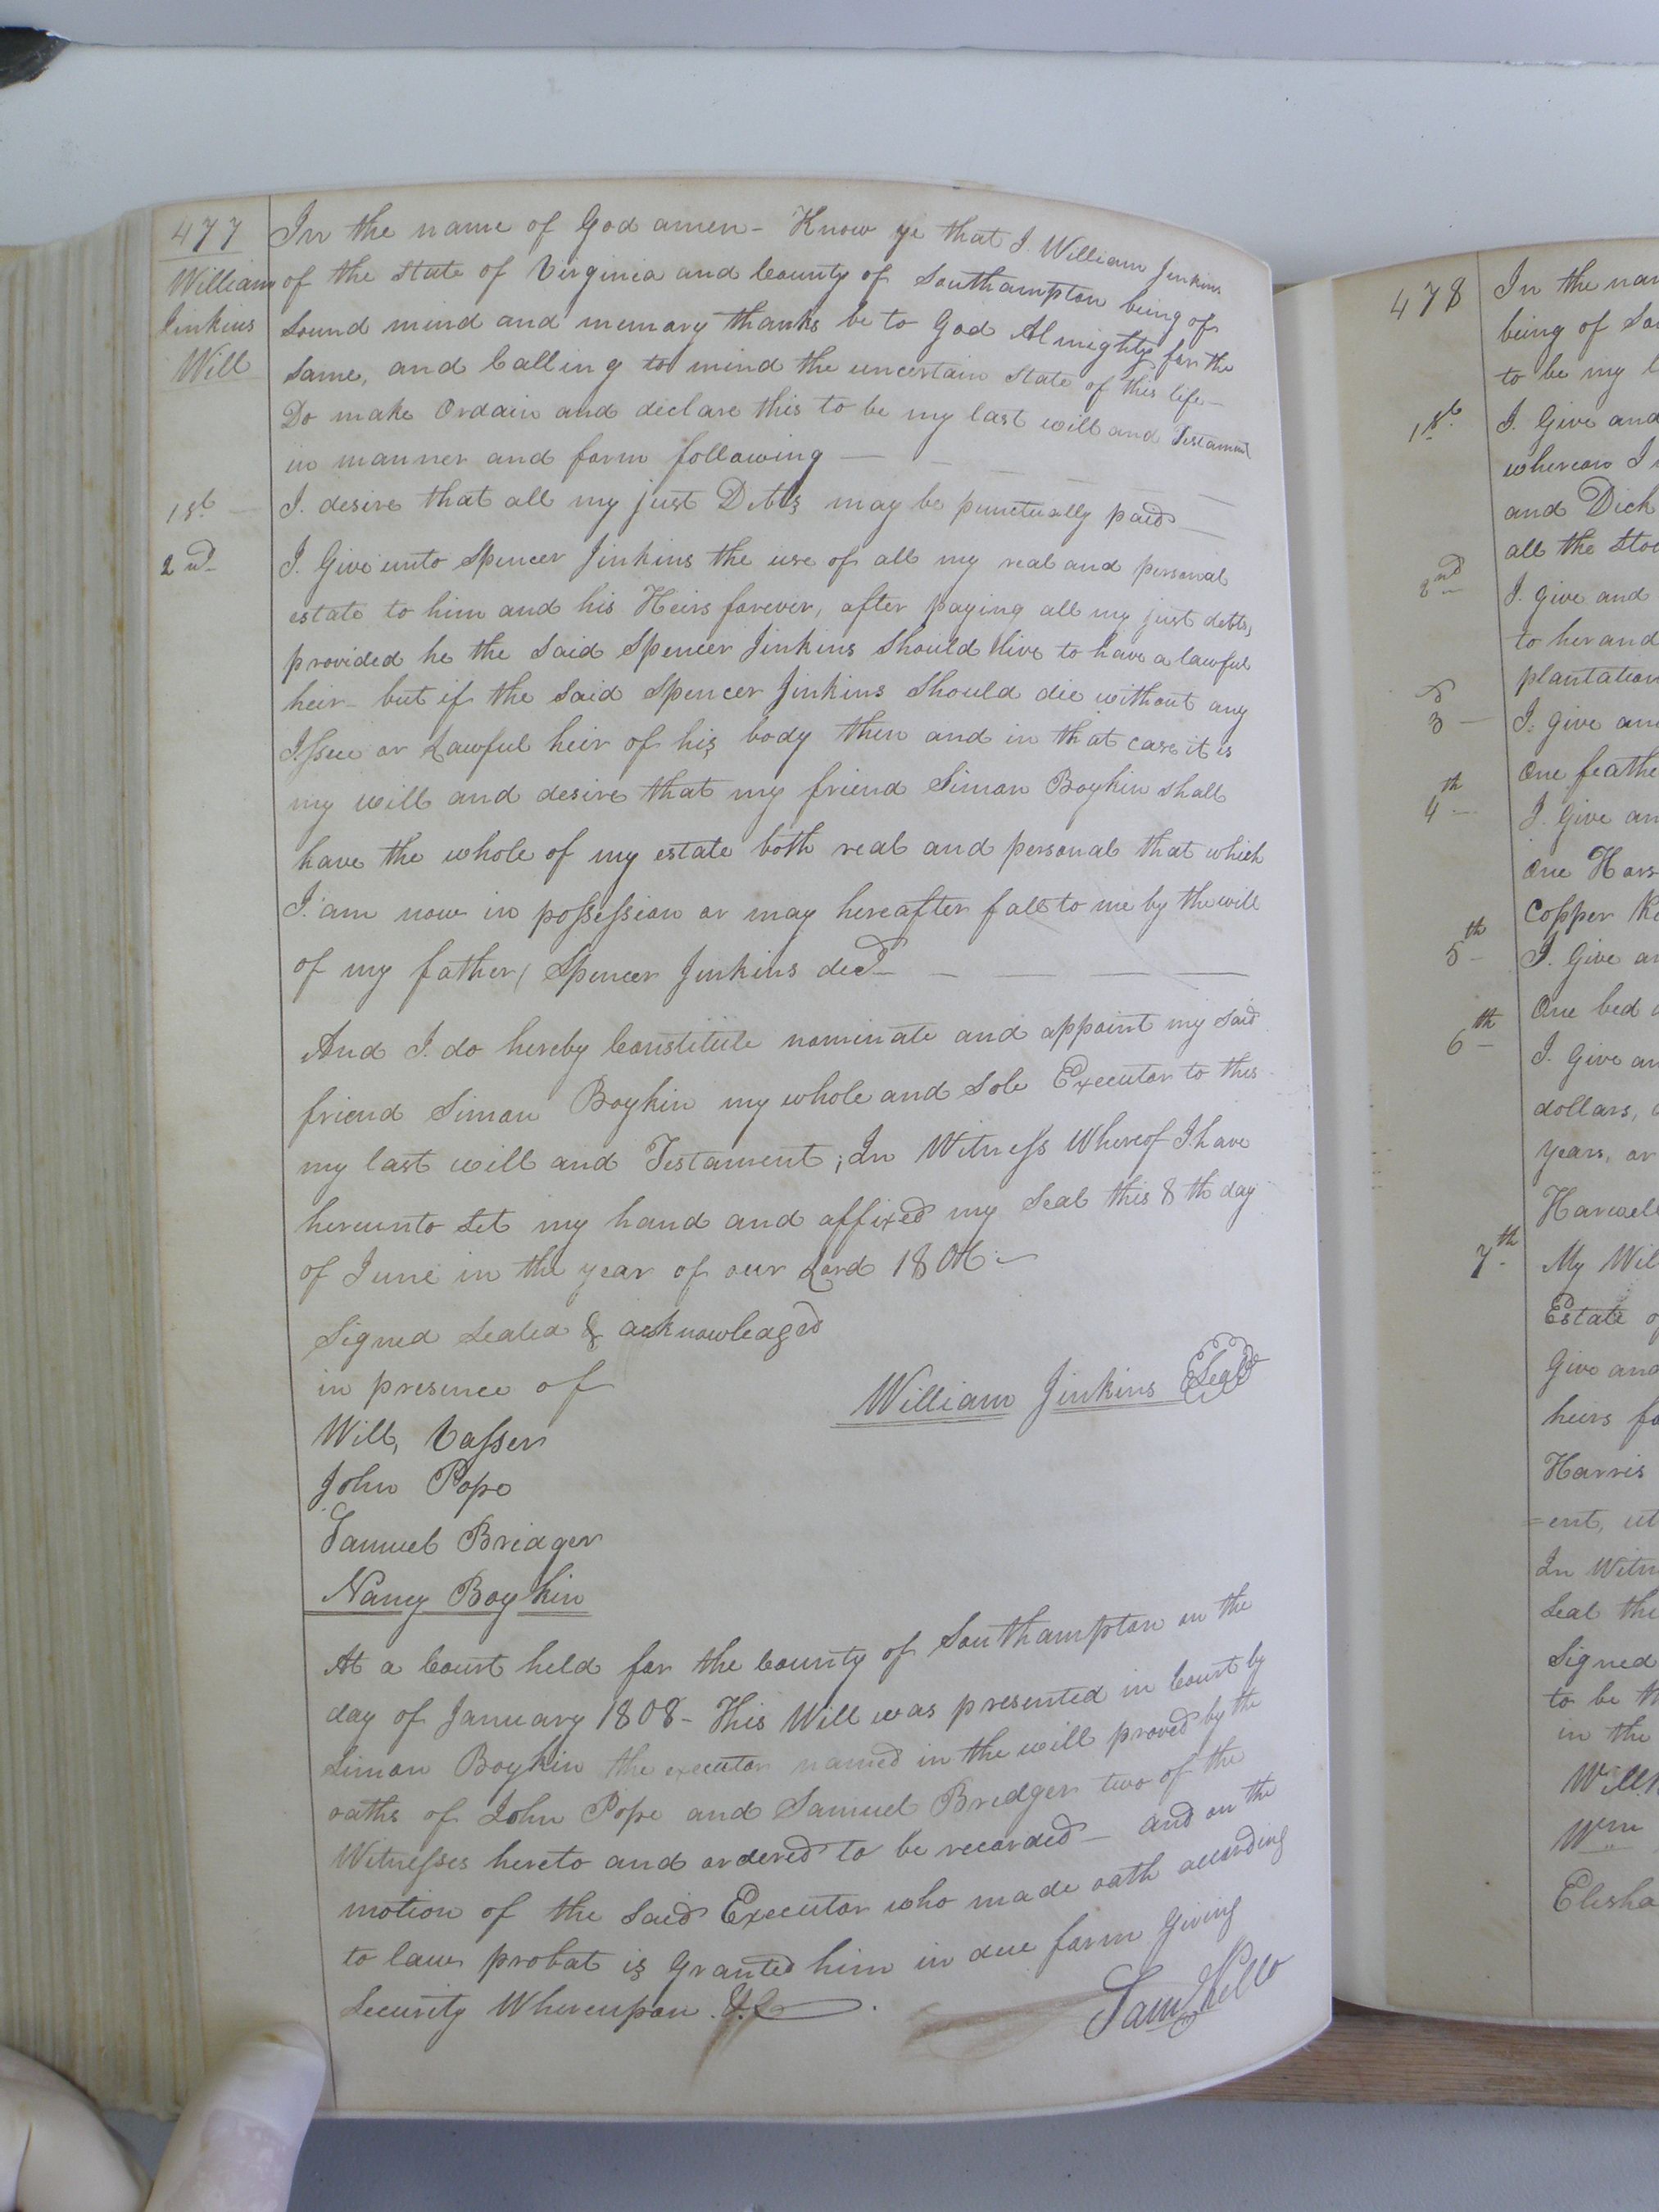 477
William
Jinkins
Will
In the name of God amen - Know ye that I. William Jinkins
of the State of Virginia and County of Southampton being of
Sound mind and memory thanks be to God Almighty for the
Same, and Calling to mind the uncertain State of this life -
Do make Ordain and declare this to be my last will and Testament
in manner and form following -
1st I. desire that all my just Debts may be punctually paid
2nd I. Give unto Spencer Jinkins the use of all my real and personal
estate to him and his Heirs forever, after paying all my just debts,
provided he the Said Spencer Jinkins Should live to have a lawful
heir - but if the Said Spencer Jinkins Should die without any
Issue or Lawful heir of his body then and in that case it is
my will and desire that my friend Simon Boykin shall
have the whole of my estate both real and personal that which
I. am now in possession or may hereafter fall to me by the will
of my father, Spencer Jinkins decd
And I. do hereby Constitute nominate and appoint my Said
friend Simon Boykin my whole and Sole Executor to this
my last will and Testament; In Witness Whereof I have
hereunto Set my hand and affixed my Seal this 8th day
of June in the year of our Lord 1806 -
Signed Sealed & acknowledged
in presence of
William Jinkins Seal
Will, Vasser
John Pope
Samuel Bridger
Nancy Boykin
At a Court held for the County of Southampton on the
day of January 1808 - This Will was presented in Court by
Simon Boykin the executor named in the will proved by the
oaths of John Pope and Samuel Bredger two of the
Witnesses hereto and ordered to be recorded - and on the
motion of the Said Executor who made oath according
to law probat is Granted him in due form Giving
Security Whereupon &c
Sam Kello
478
In the nam
being of So
to be my l
1st I. Give and
whereon I
and Dick
all the Stoc
2nd I. Give and
to her and
plantation
3 I. Give an
One feathe
4th I. Give an
One Hors
Copper Ke
5th I. Give an
One bed
6th I. Give an
dollars,
years, or
Harwell
7th My Wil
Estate of
Give and
heirs fo
Harris
=ent, ut
In Witn
Seal the
Signed
to be th
in the
Will
Wm
Elisha